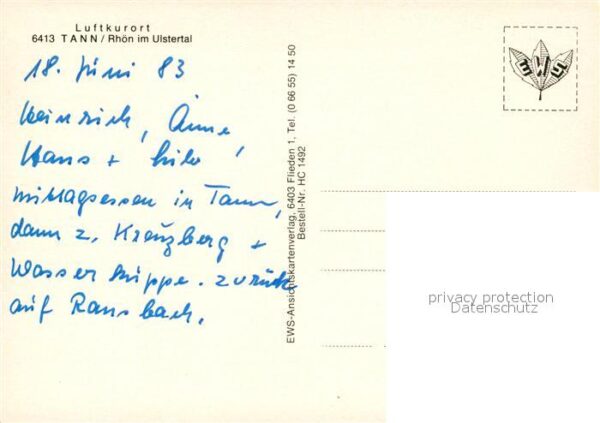 Luftkurort
6413 TANN / Rhön im Ulstertal
18. Juni 83
Heinrich, Änne,
Hans +
Mittagessen in Tann,
dann z. Kreuzberg +
Wasserkuppe. zurück
auf Ransbach.
EWS-Ansichtskartenverlag, 6403 Flieden 1, Tel. (0 66 55) 14 50
Bestell-Nr. HC 1492
EWS
privacy protection
Datenschutz